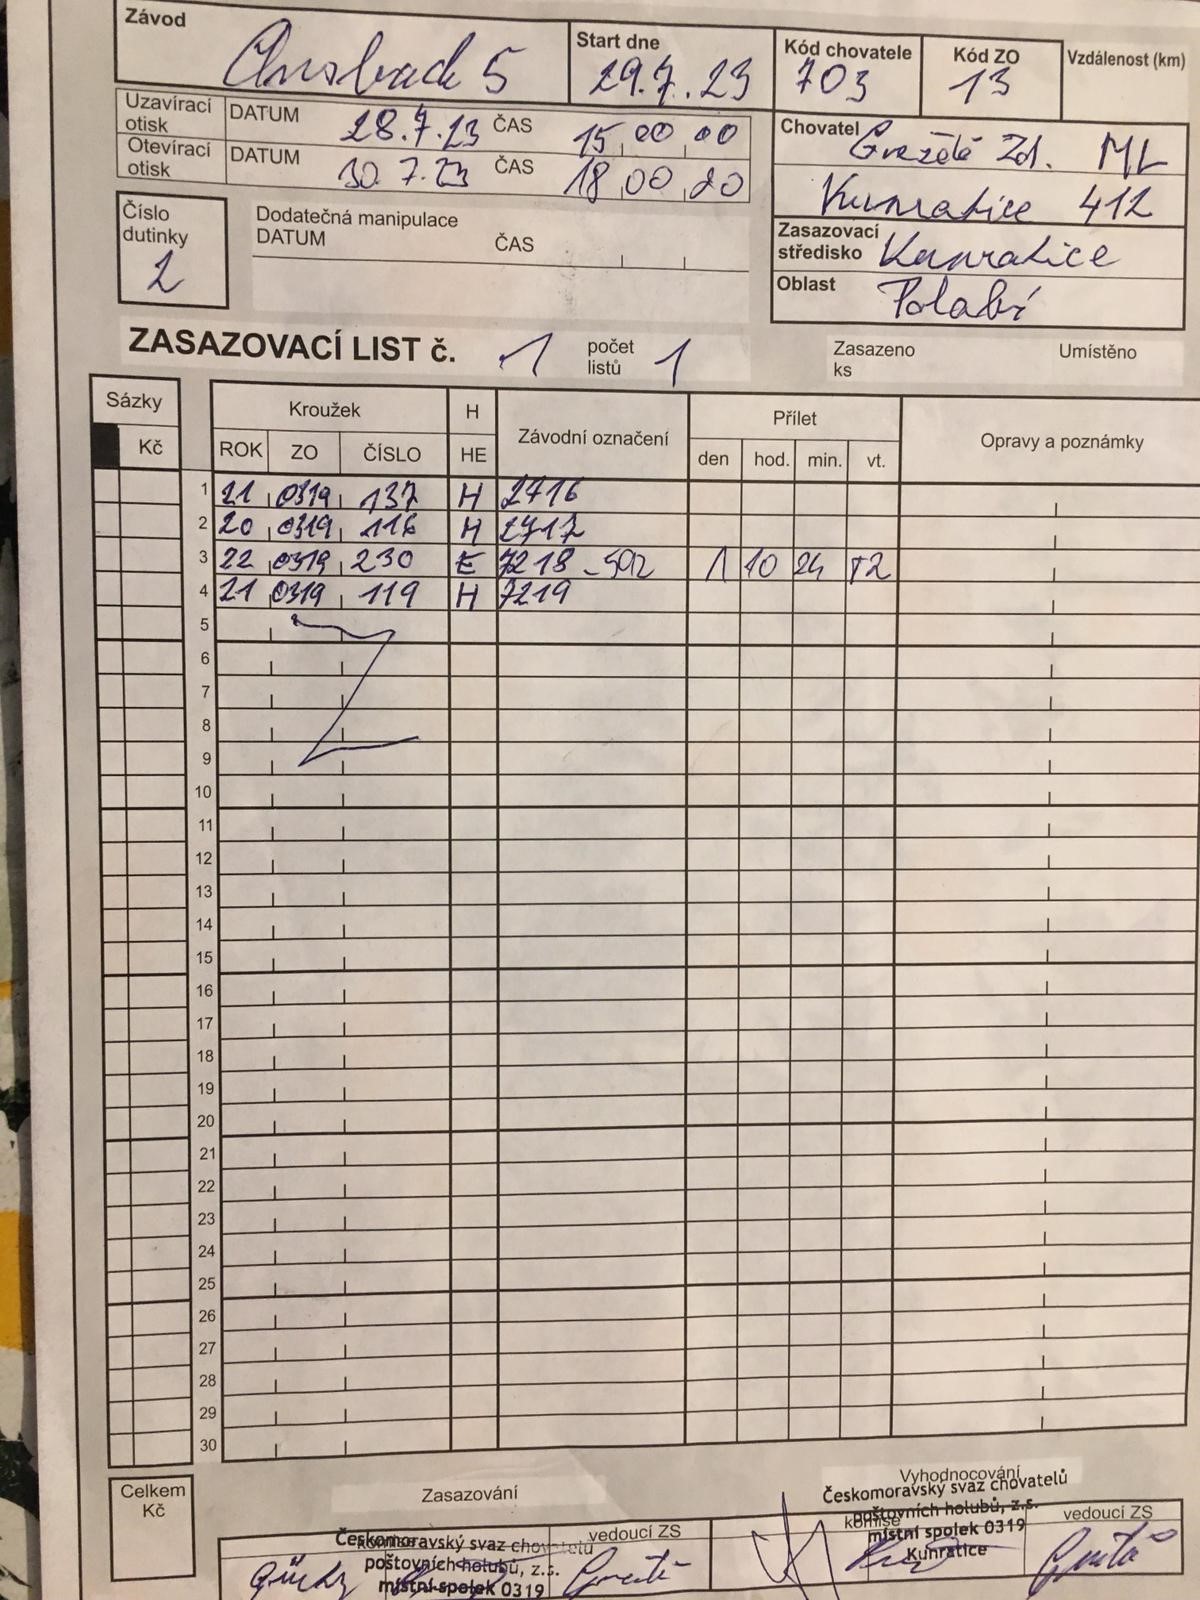 Závod Ansbach 5 Start dne 29.7.23 Kód chovatele 703 Kód ZO 13 Vzdálenost (km)
Uzavírací otisk DATUM 28.7.23 ČAS 15 00 00
Otevírací otisk DATUM 30.7.23 ČAS 18 00 20
Chovatel Zd. ML
Kunratice 412
Zasazovací středisko Kunratice
Oblast Polabí
Číslo dutinky 2
Dodatečná manipulace
DATUM ČAS
ZASAZOVACÍ LIST č. 1 počet listů 1 Zasazeno ks Umístěno
Sázky Kroužek H Závodní označení Přílet Opravy a poznámky
Kč ROK ZO ČÍSLO HE den hod. min. vt.
1 21 0319 137 H 2716
2 20 0319 116 H 2717
3 22 0319 230 E 7218 - 502 1 10 24 12
4 21 0319 119 H 7219
5
6
7
8
9
10
11
12
13
14
15
16
17
18
19
20
21
22
23
24
25
26
27
28
29
30
Celkem Kč
Zasazování
Vyhodnocování
komise vedoucí ZS
Českomoravský svaz chovatelů
poštovních holubů, z.s.
místní spolek 0319
komise vedoucí ZS
Českomoravský svaz chovatelů
poštovních holubů, z.s.
místní spolek 0319
Kunratice